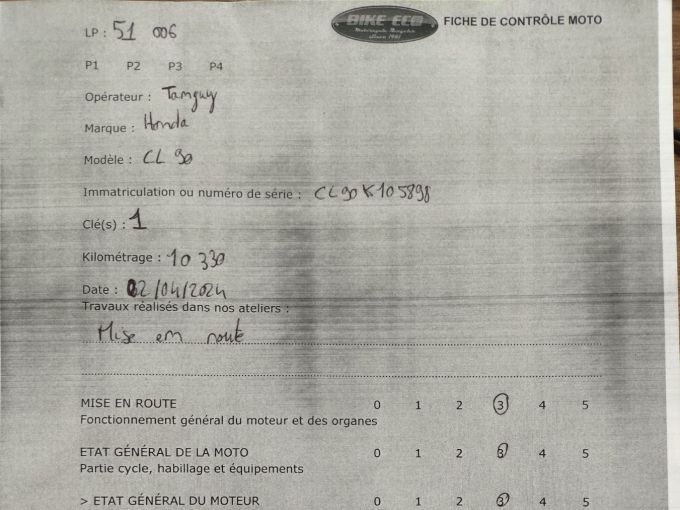 BIKE ECO
Motorcycle Recycler
Since 1981
FICHE DE CONTRÔLE MOTO
LP : 51 006
P1 P2 P3 P4
Opérateur : Tanguy
Marque : Honda
Modèle : CL 90
Immatriculation ou numéro de série : CL90K105898
Clé(s) : 1
Kilométrage : 10 330
Date : 02/04/2024
Travaux réalisés dans nos ateliers :
Mise en route
MISE EN ROUTE 0 1 2 3 4 5
Fonctionnement général du moteur et des organes
ETAT GÉNÉRAL DE LA MOTO 0 1 2 3 4 5
Partie cycle, habillage et équipements
> ETAT GÉNÉRAL DU MOTEUR 0 1 2 3 4 5